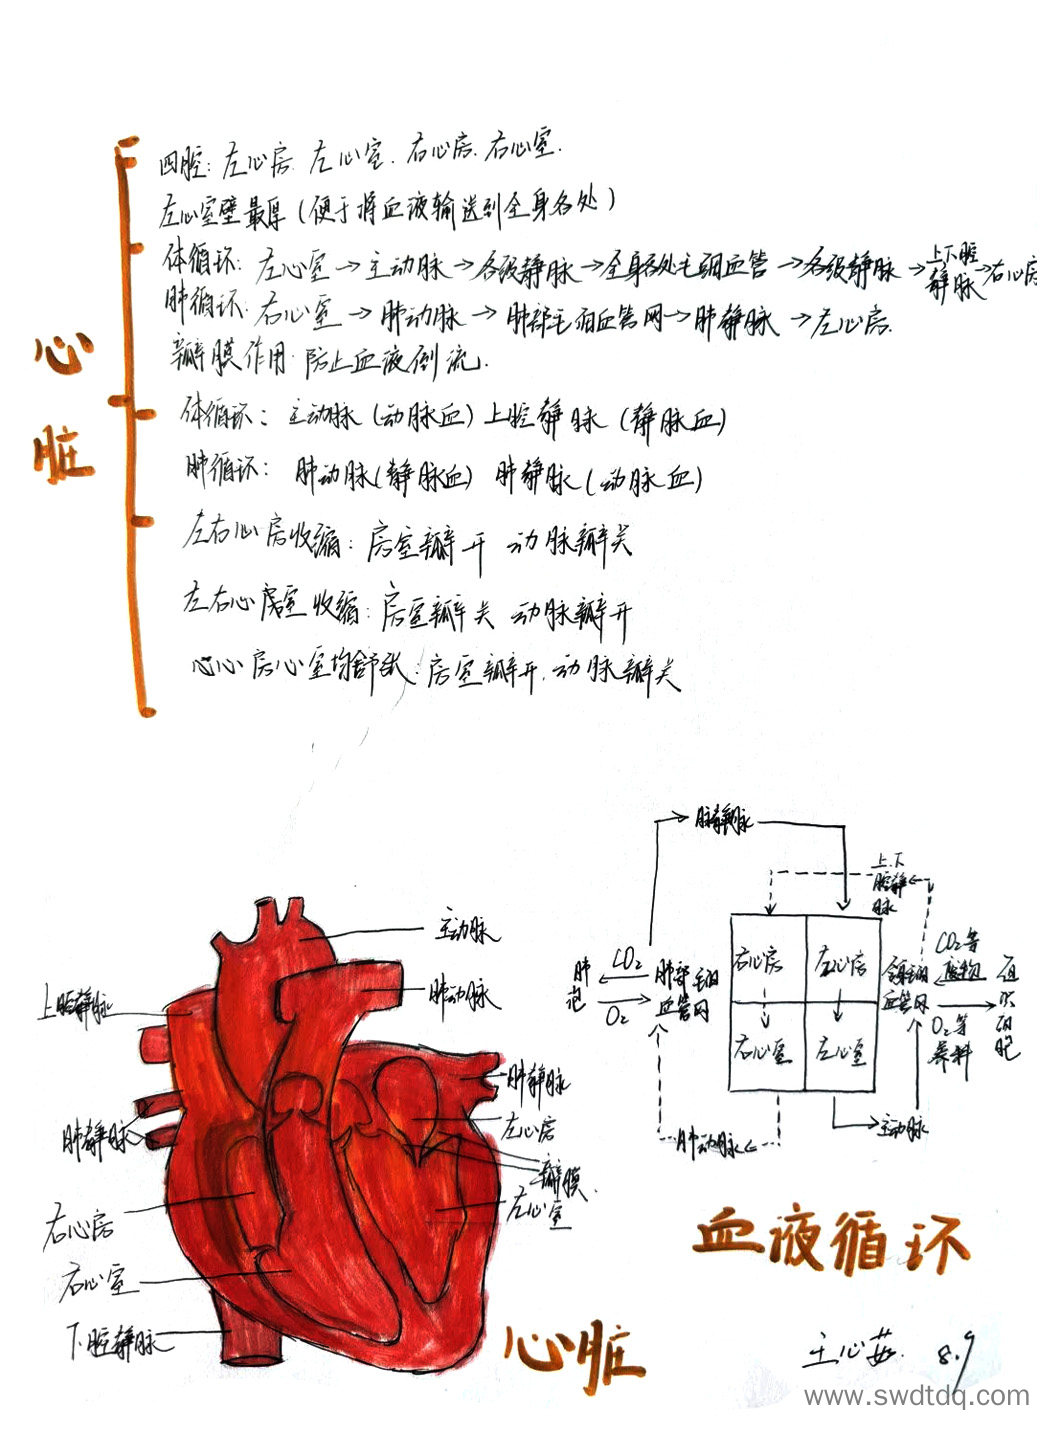 心脏
四腔：左心房 左心室．右心房．右心室．
左心室壁最厚（便于将血液输送到全身各处）
体循环：左心室→主动脉→各级静脉→全身各处毛细血管→各级静脉→上下腔静脉→右心房
肺循环：右心室→肺动脉→肺部毛细血管网→肺静脉→左心房．
瓣膜作用：防止血液倒流．
体循环：主动脉（动脉血）上腔静脉（静脉血）
肺循环：肺动脉（静脉血）肺静脉（动脉血）
左右心房收缩：房室瓣开 动脉瓣关
左右心室收缩：房室瓣关 动脉瓣开
心房心室均舒张：房室瓣开．动脉瓣关
肺静脉
上．下
腔静
脉
右心房
左心房
右心室
左心室
肺泡
CO2
O2
肺部毛细
血管网
血管网
CO2等
废物
O2等
养料
主动脉
肺动脉
主动脉
肺动脉
上腔静脉
肺静脉
左心房
瓣膜．
左心室
肺静脉
右心房
右心室
下腔静脉
血液循环
心脏
王心茹．8.9
www.swdtdq.com